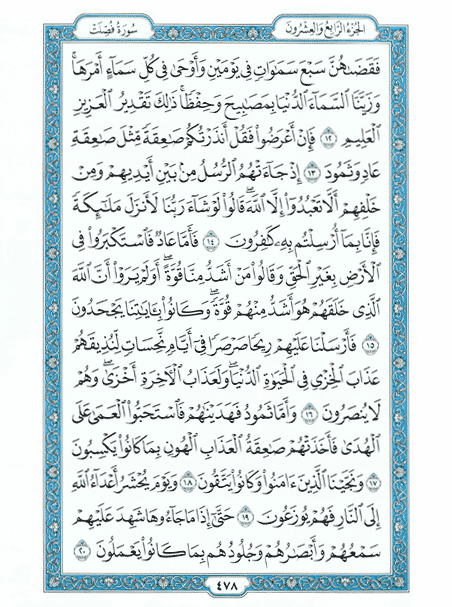 الجُزْءُ الرَّابِعُ وَالعِشْرُونَ
سُورَةُ فُصِّلَتْ
فَقَضَىٰهُنَّ سَبْعَ سَمَٰوَاتٍ فِي يَوْمَيْنِ وَأَوْحَىٰ فِي كُلِّ سَمَآءٍ أَمْرَهَاۚ
وَزَيَّنَّا ٱلسَّمَآءَ ٱلدُّنْيَا بِمَصَٰبِيحَ وَحِفْظًاۚ ذَٰلِكَ تَقْدِيرُ ٱلْعَزِيزِ
ٱلْعَلِيمِ ١٢ فَإِنْ أَعْرَضُوا۟ فَقُلْ أَنذَرْتُكُمْ صَٰعِقَةً مِّثْلَ صَٰعِقَةِ
عَادٍ وَثَمُودَ ١٣ إِذْ جَآءَتْهُمُ ٱلرُّسُلُ مِنۢ بَيْنِ أَيْدِيهِمْ وَمِنْ
خَلْفِهِمْ أَلَّا تَعْبُدُوٓا۟ إِلَّا ٱللَّهَۖ قَالُوا۟ لَوْ شَآءَ رَبُّنَا لَأَنزَلَ مَلَٰٓئِكَةً
فَإِنَّا بِمَآ أُرْسِلْتُم بِهِۦ كَٰفِرُونَ ١٤ فَأَمَّا عَادٌ فَٱسْتَكْبَرُوا۟ فِي
ٱلْأَرْضِ بِغَيْرِ ٱلْحَقِّ وَقَالُوا۟ مَنْ أَشَدُّ مِنَّا قُوَّةًۖ أَوَلَمْ يَرَوْا۟ أَنَّ ٱللَّهَ
ٱلَّذِي خَلَقَهُمْ هُوَ أَشَدُّ مِنْهُمْ قُوَّةًۖ وَكَانُوا۟ بِـَٔايَٰتِنَا يَجْحَدُونَ
١٥ فَأَرْسَلْنَا عَلَيْهِمْ رِيحًا صَرْصَرًا فِيٓ أَيَّامٍ نَّحِسَاتٍ لِّنُذِيقَهُمْ
عَذَابَ ٱلْخِزْيِ فِي ٱلْحَيَوٰةِ ٱلدُّنْيَاۖ وَلَعَذَابُ ٱلْأٓخِرَةِ أَخْزَىٰۖ وَهُمْ
لَا يُنصَرُونَ ١٦ وَأَمَّا ثَمُودُ فَهَدَيْنَٰهُمْ فَٱسْتَحَبُّوا۟ ٱلْعَمَىٰ عَلَى
ٱلْهُدَىٰ فَأَخَذَتْهُمْ صَٰعِقَةُ ٱلْعَذَابِ ٱلْهُونِ بِمَا كَانُوا۟ يَكْسِبُونَ
١٧ وَنَجَّيْنَا ٱلَّذِينَ ءَامَنُوا۟ وَكَانُوا۟ يَتَّقُونَ ١٨ وَيَوْمَ يُحْشَرُ أَعْدَآءُ ٱللَّهِ
إِلَى ٱلنَّارِ فَهُمْ يُوزَعُونَ ١٩ حَتَّىٰٓ إِذَا مَا جَآءُوهَا شَهِدَ عَلَيْهِمْ
سَمْعُهُمْ وَأَبْصَٰرُهُمْ وَجُلُودُهُم بِمَا كَانُوا۟ يَعْمَلُونَ ٢٠
٤٧٨